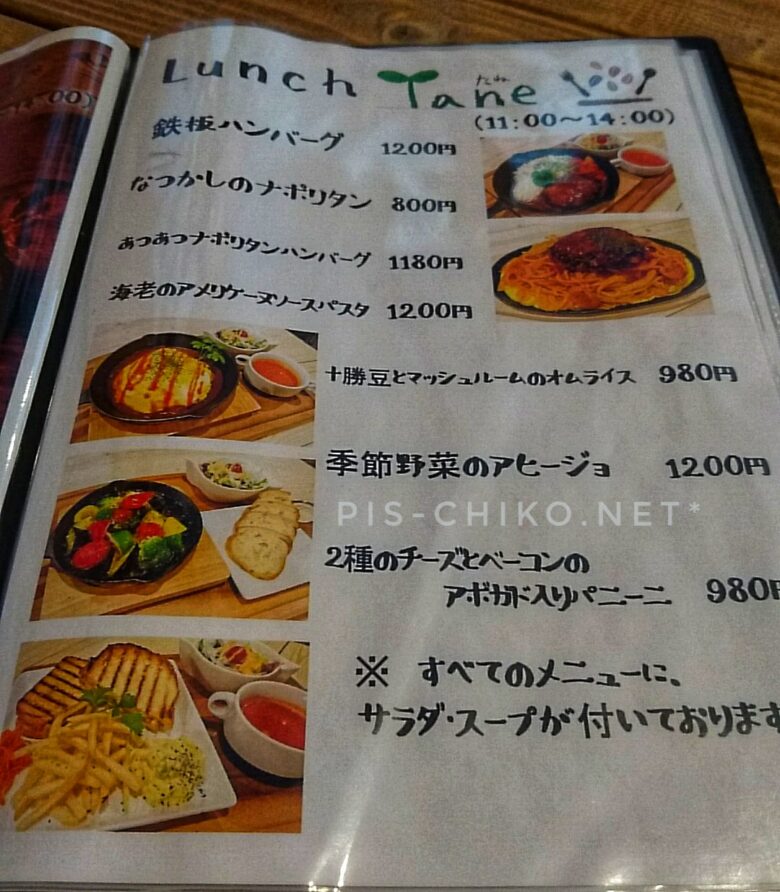 Lunch Tane
たね
(11:00～14:00)
鉄板ハンバーグ 1200円
なつかしのナポリタン 800円
あつあつナポリタンハンバーグ 1180円
海老のアメリケーヌソースパスタ 1200円
十勝豆とマッシュルームのオムライス 980円
季節野菜のアヒージョ 1200円
PIS-CHIKO.NET*
2種のチーズとベーコンの
アボガド入りパニーニ 980円
※ すべてのメニューに、
サラダ・スープが付いております